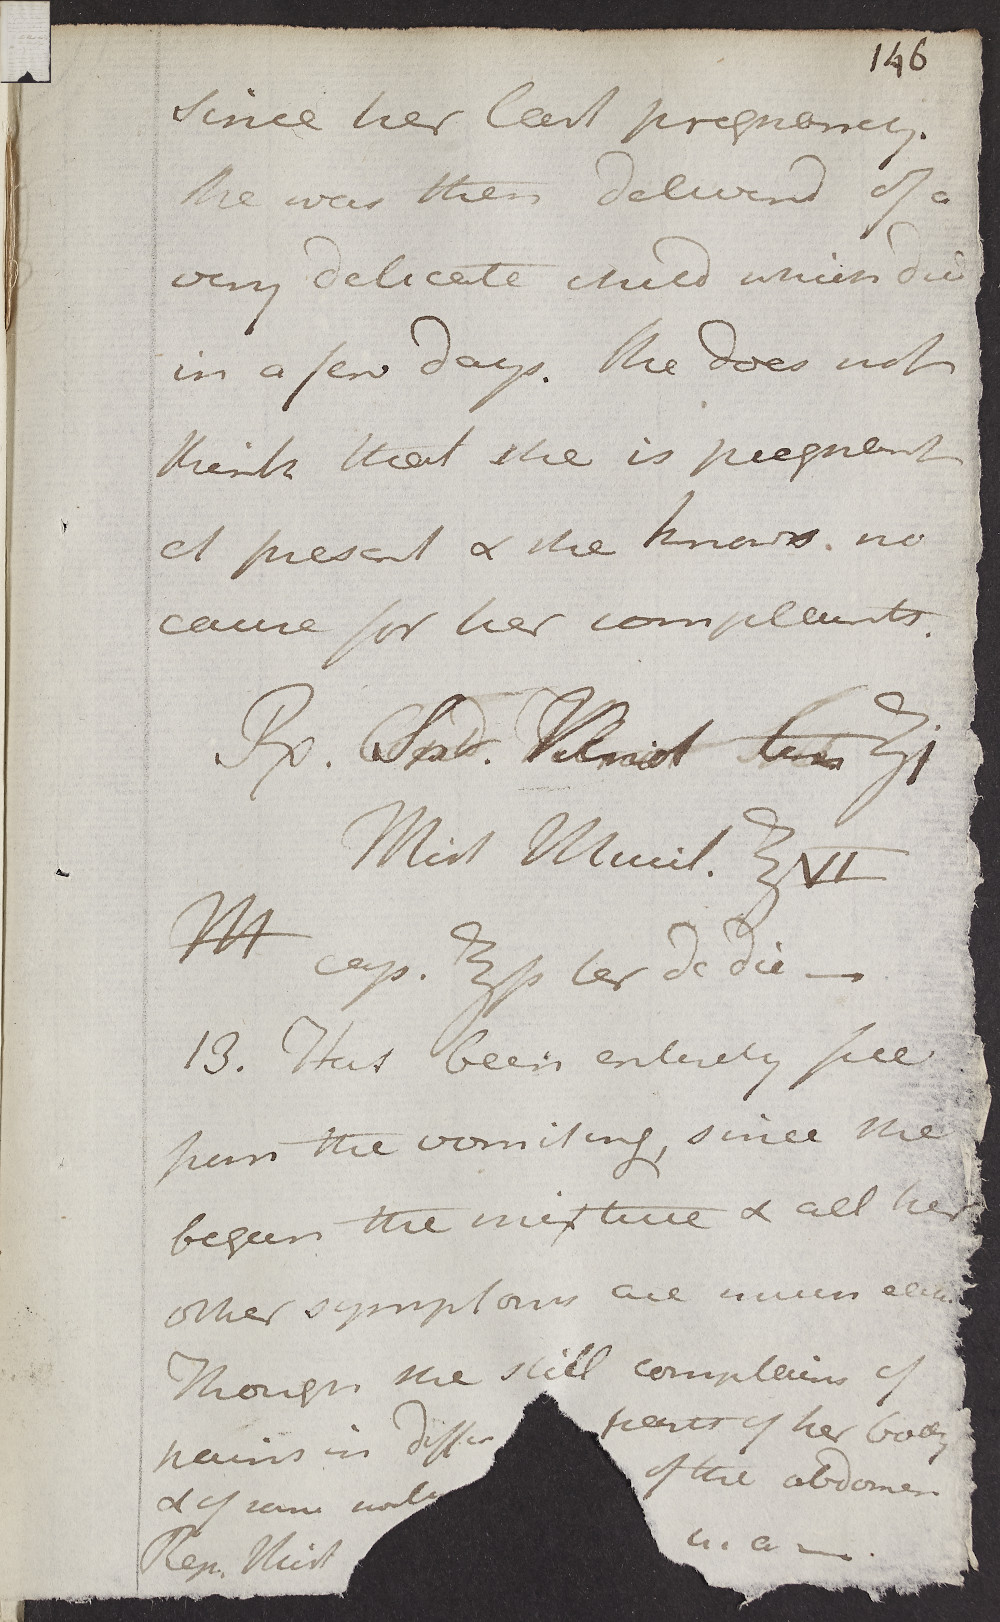 146
since her last pregnancy.
She was then delivered of a
very delicate child which die
in a few days. She does not
think that she is pregnant
at present & she knows no
cause for her complaints.
Rx. ʒj
Mist ʒVI
M cap. ʒss ter de die —
13. Has been entirely free
from the vomiting, since she
began the mixture & all her
other symptoms are much
Though she still complains of
pains in differ parts of her body
& of some of the abdomen
Rep. Mist u. a —.